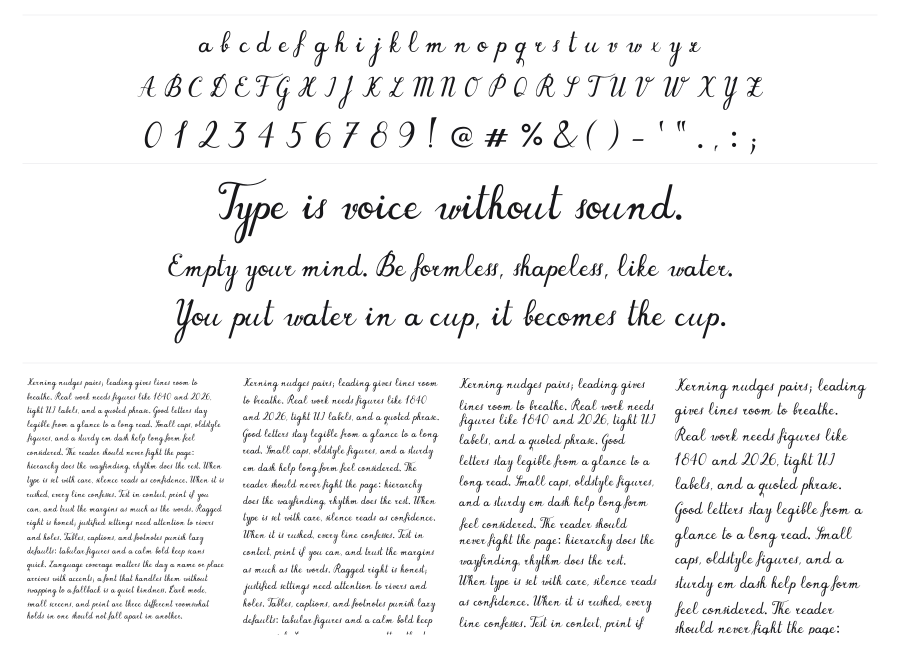 a b c d e f g h i j k l m n o p q r s t u v w x y z
A B C D E F G H I J K L M N O P Q R S T U V W X Y Z
0 1 2 3 4 5 6 7 8 9 ! @ # % & ( ) - ' " . , : ;
Type is voice without sound.
Empty your mind. Be formless, shapeless, like water.
You put water in a cup, it becomes the cup.
Kerning nudges pairs; leading gives lines room to
breathe. Real work needs figures like 1840 and 2026,
tight UI labels, and a quoted phrase. Good letters stay
legible from a glance to a long read. Small caps, oldstyle
figures, and a sturdy em dash help long form feel
considered. The reader should never fight the page:
hierarchy does the wayfinding, rhythm does the rest. When
type is set with care, silence reads as confidence. When it is
rushed, every line confesses. Test in context, print if you
can, and trust the margins as much as the words. Ragged
right is honest; justified settings need attention to rivers
and holes. Tables, captions, and footnotes punish lazy
defaults: tabular figures and a calm bold keep scans
quick. Language coverage matters the day a name or place
arrives with accents; a font that handles them without
swapping to a fallback is a quiet kindness. Dark mode,
small screens, and print are three different rooms what
holds in one should not fall apart in another.
Kerning nudges pairs; leading gives lines room
to breathe. Real work needs figures like 1840
and 2026, tight UI labels, and a quoted phrase.
Good letters stay legible from a glance to a long
read. Small caps, oldstyle figures, and a sturdy
em dash help long form feel considered. The
reader should never fight the page: hierarchy
does the wayfinding, rhythm does the rest. When
type is set with care, silence reads as confidence.
When it is rushed, every line confesses. Test in
context, print if you can, and trust the margins
as much as the words. Ragged right is honest;
justified settings need attention to rivers and
holes. Tables, captions, and footnotes punish lazy
defaults: tabular figures and a calm bold keep
Kerning nudges pairs; leading gives
lines room to breathe. Real work needs
figures like 1840 and 2026, tight UI
labels, and a quoted phrase. Good
letters stay legible from a glance to a
long read. Small caps, oldstyle figures,
and a sturdy em dash help long form
feel considered. The reader should
never fight the page: hierarchy does the
wayfinding, rhythm does the rest.
When type is set with care, silence reads
as confidence. When it is rushed, every
line confesses. Test in context, print if
Kerning nudges pairs; leading
gives lines room to breathe.
Real work needs figures like
1840 and 2026, tight UI
labels, and a quoted phrase.
Good letters stay legible from a
glance to a long read. Small
caps, oldstyle figures, and a
sturdy em dash help long form
feel considered. The reader
should never fight the page: